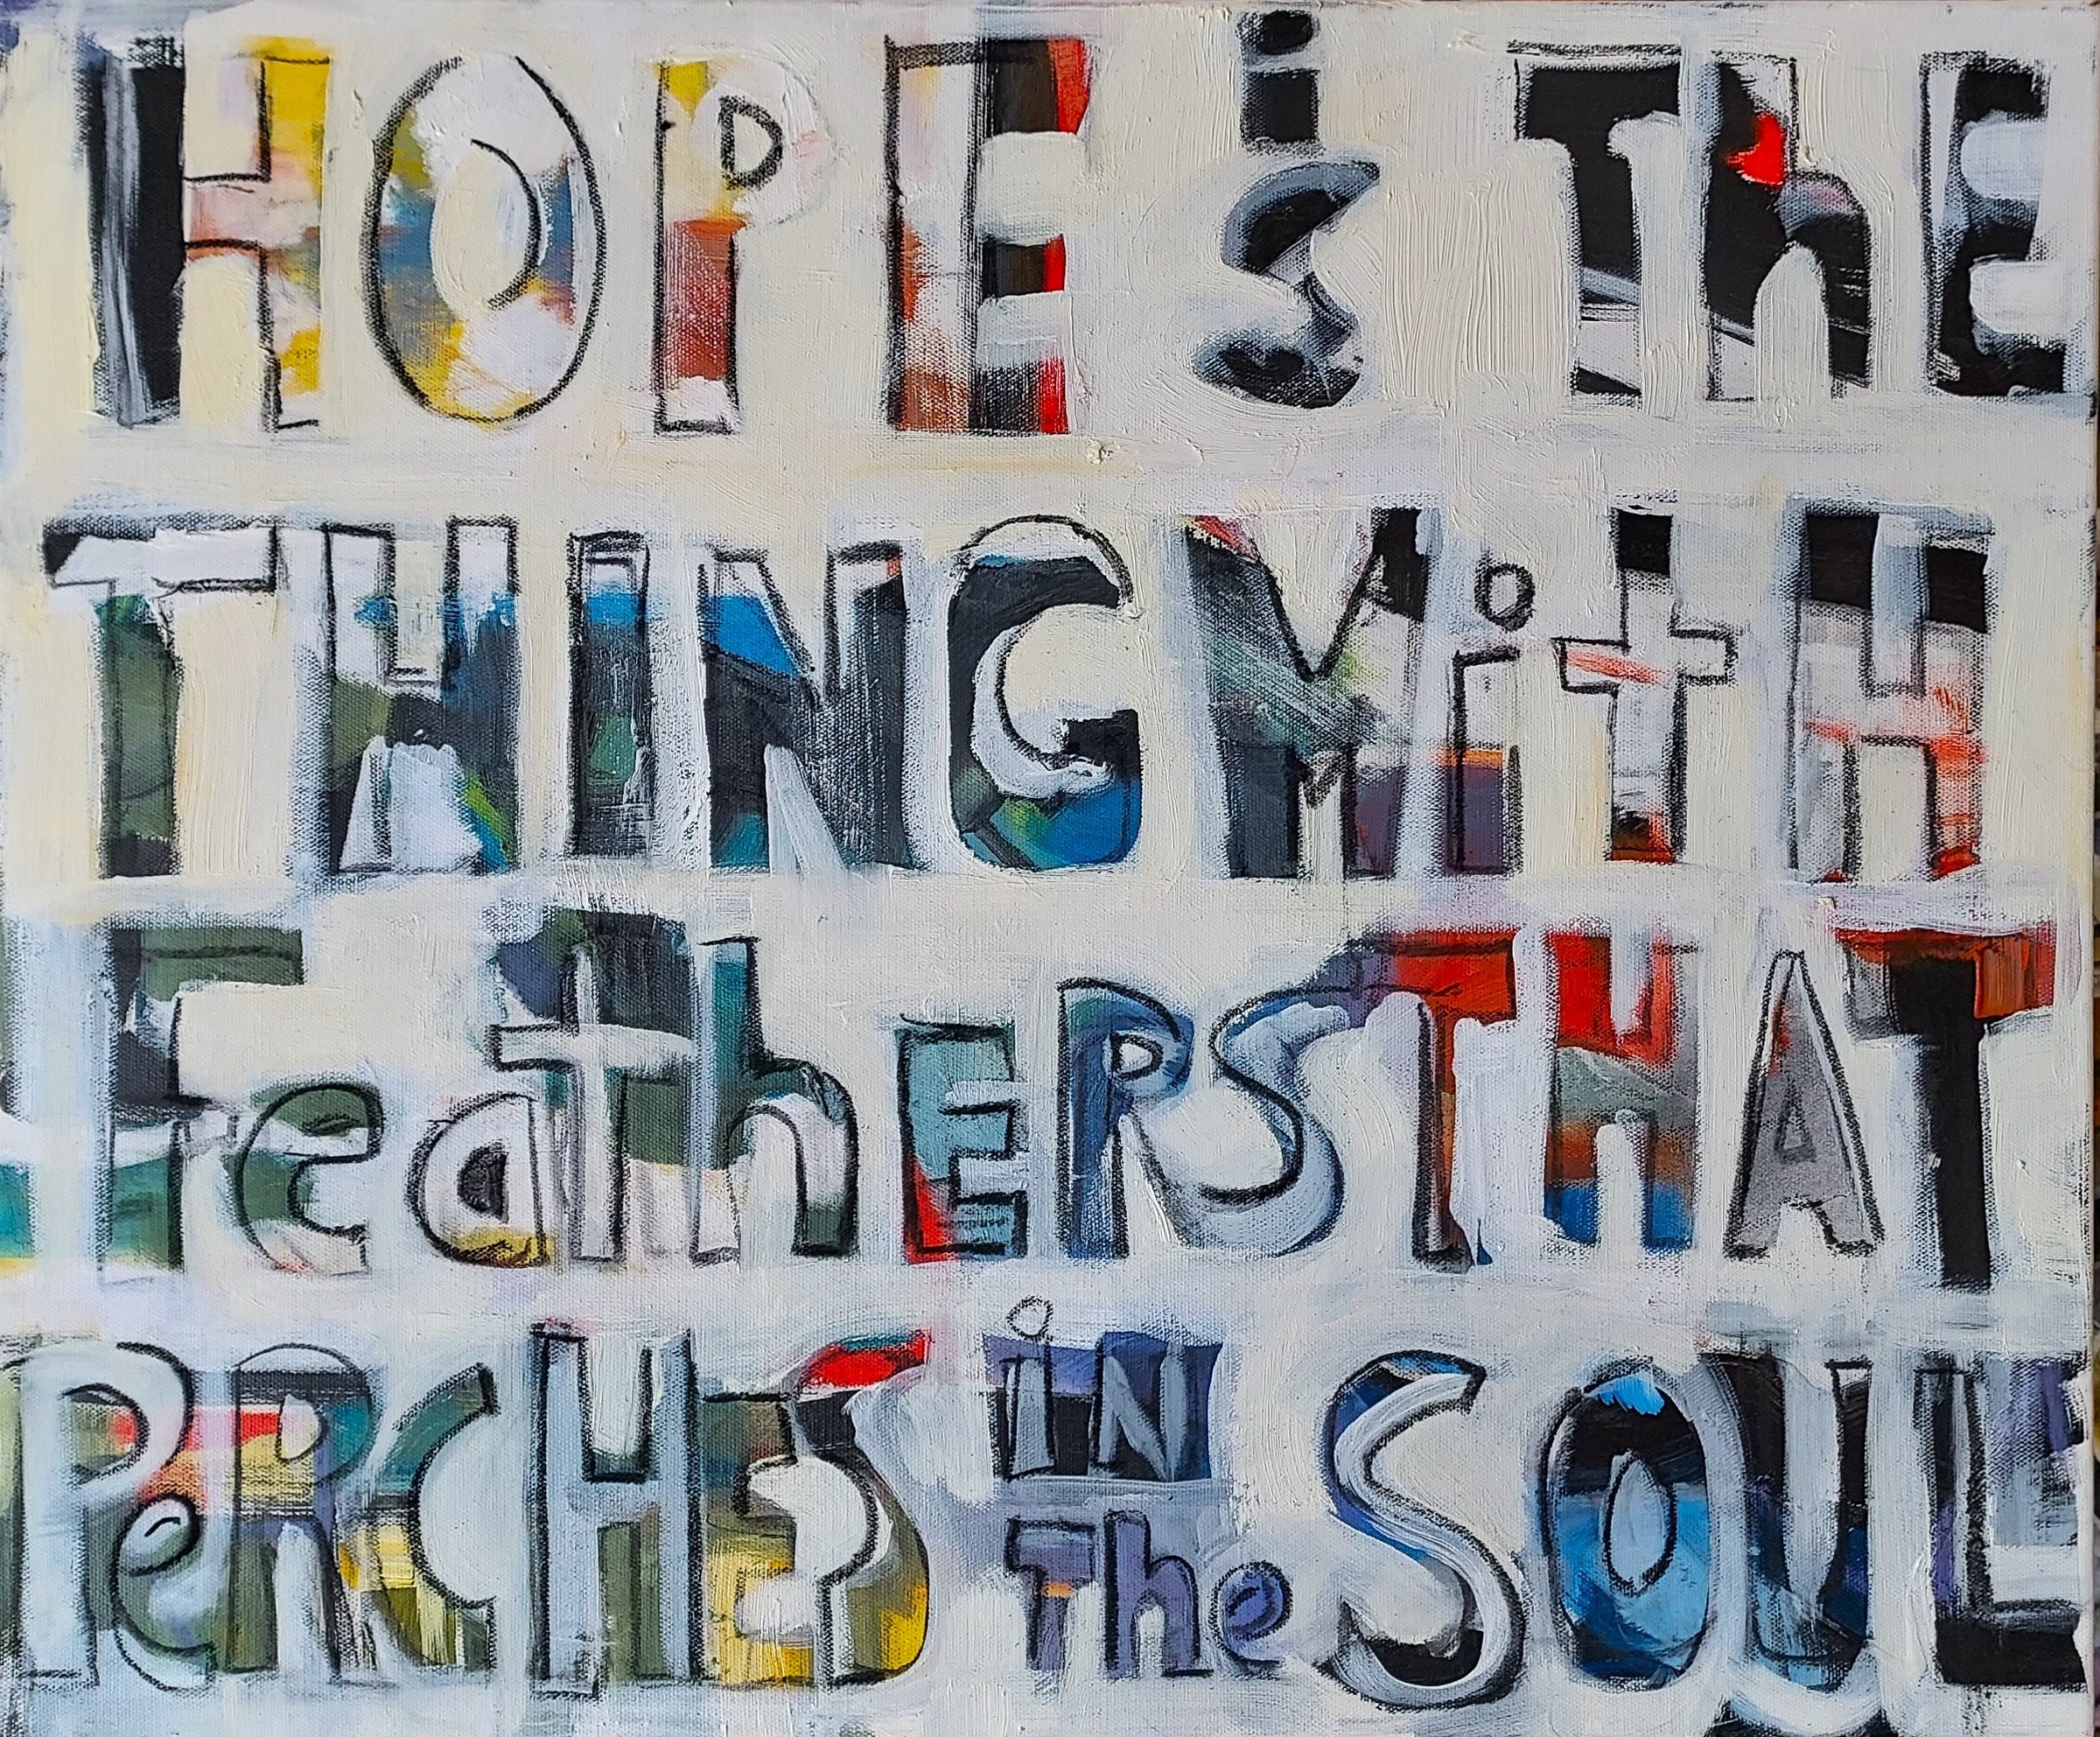 HOPE is ThE
THING WitH
FeathERS THAT
PeRCHES iN The SOUL